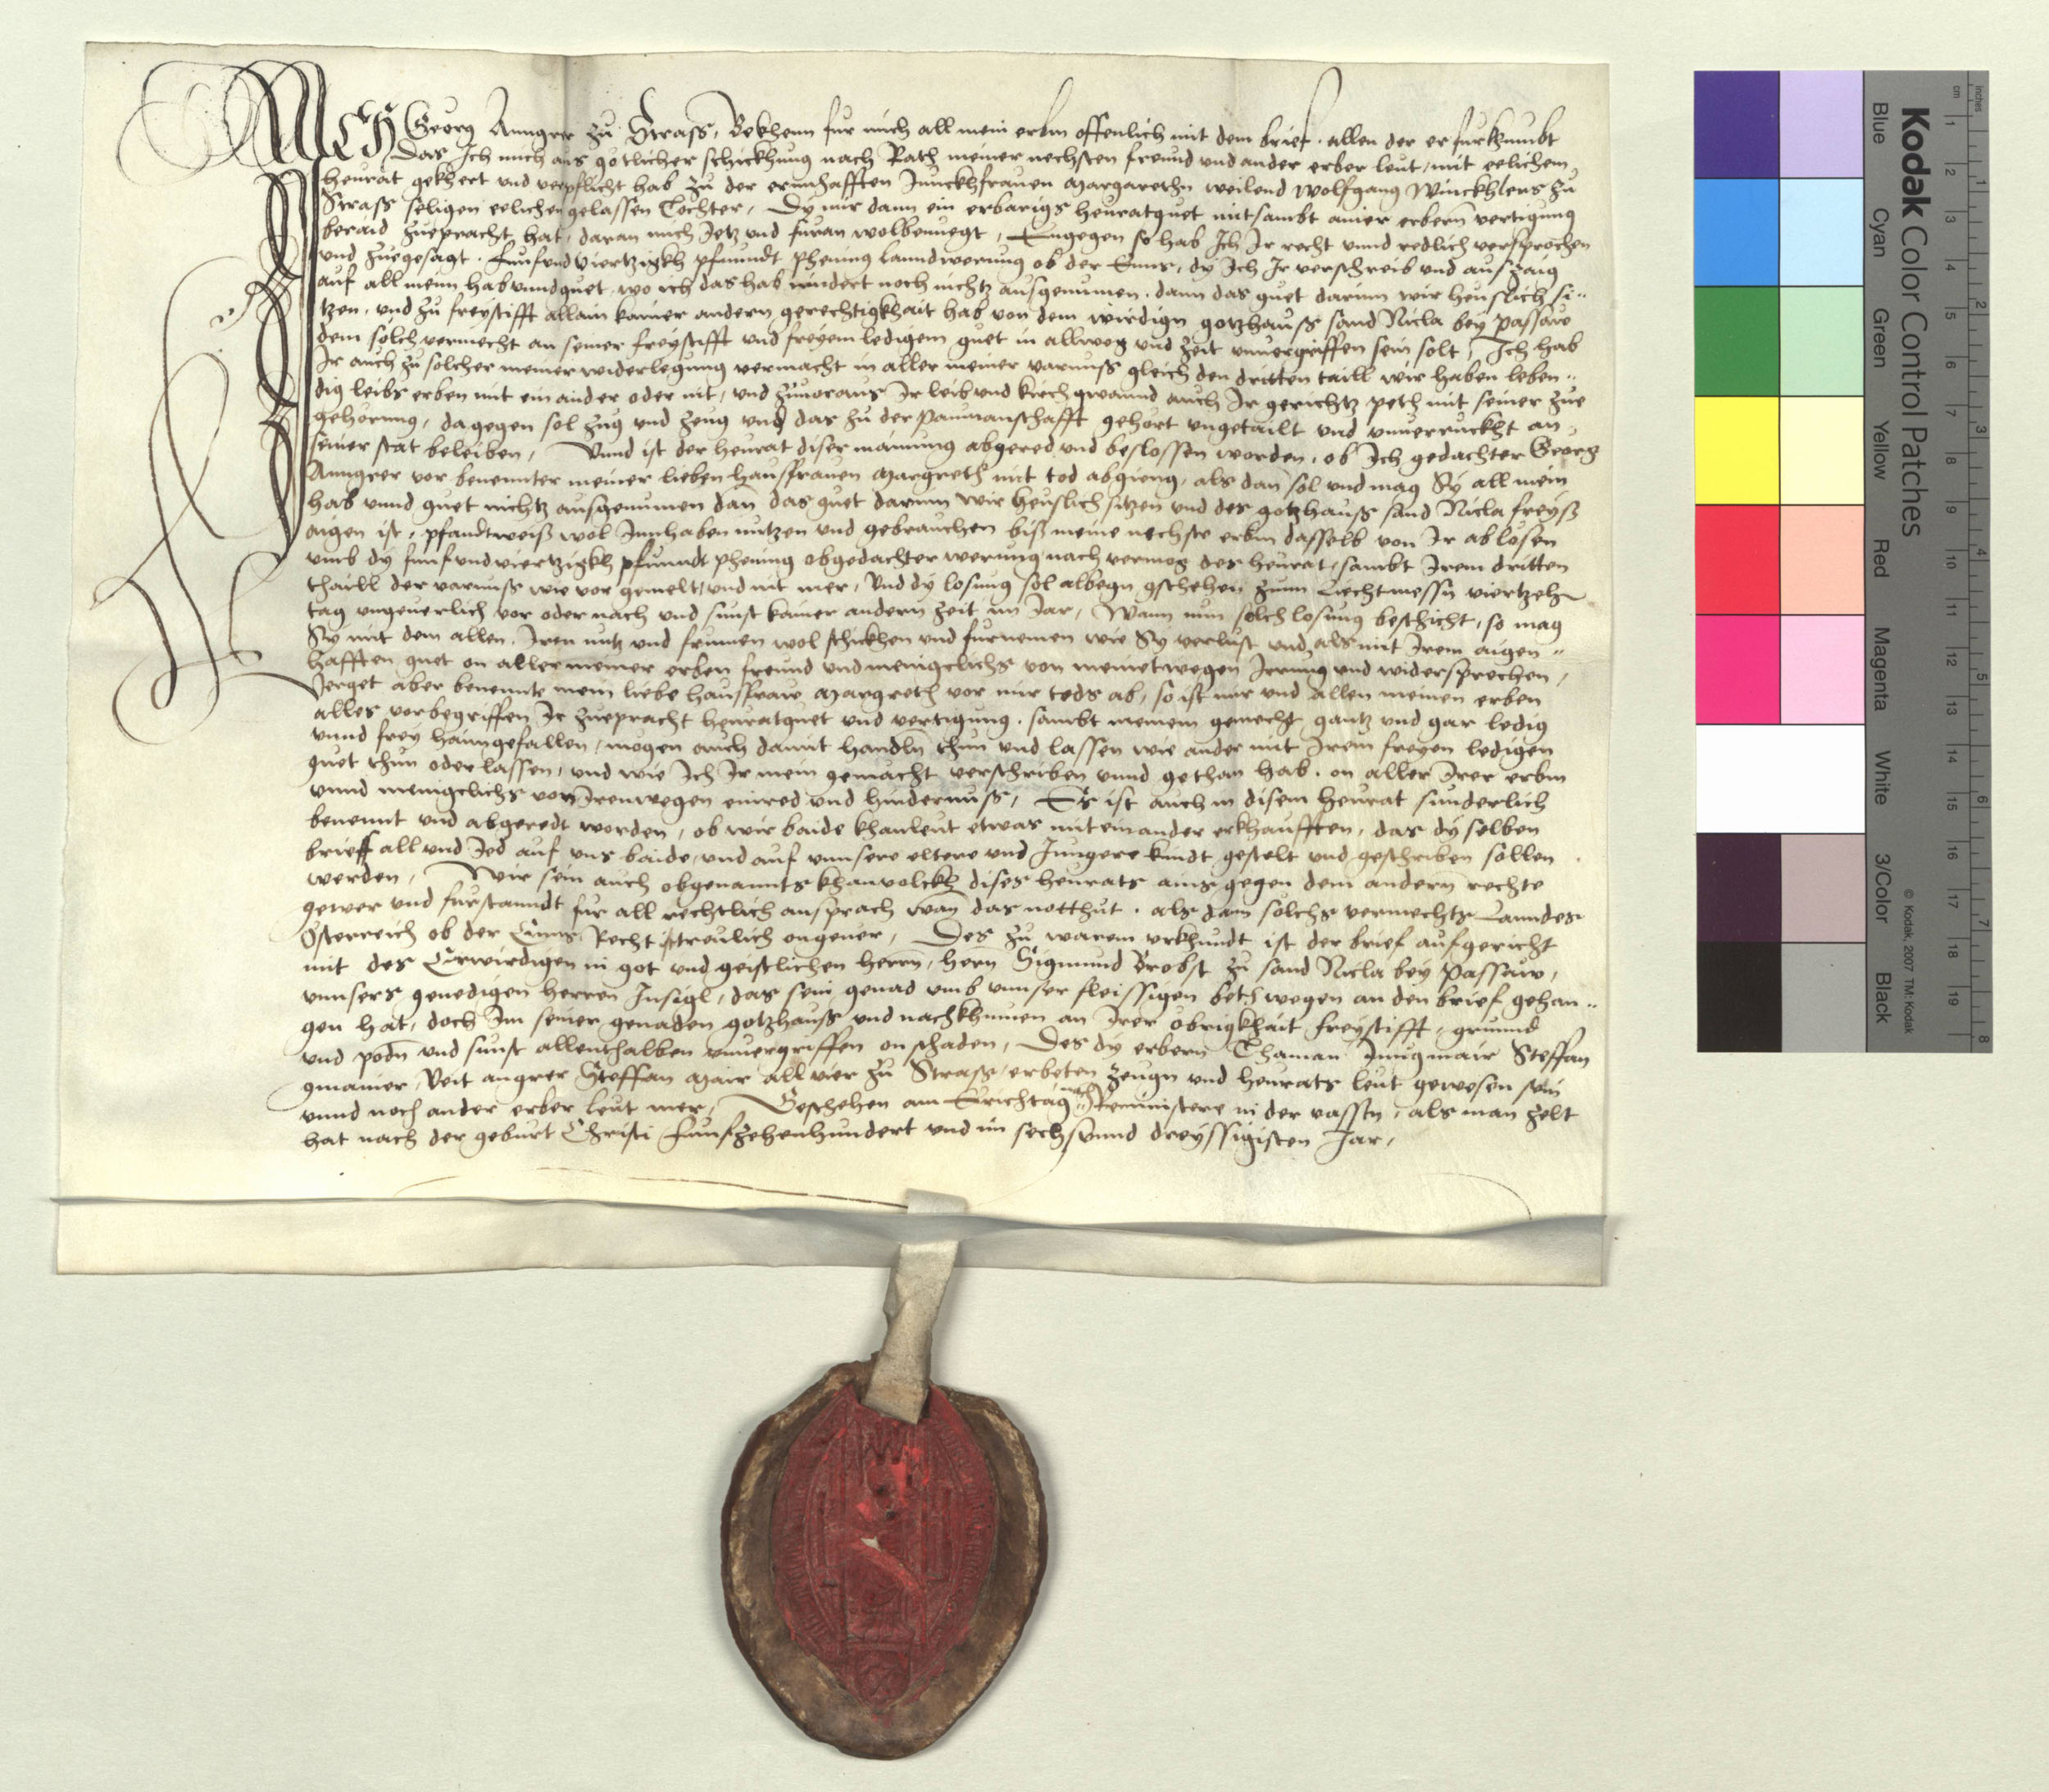 Ich Georg Annger zu Strass, Bekhenn fur mich all mein erbm offenlich mit dem brief. allen den er furkhumbt
Das Ich mich aus gotlicher schickhung nach Rath meiner nechsten freund und ander erber leut, mit eelichem
heurat gekhert und verpflicht hab zu der ernnhafften Junckhfrauen Margarethn weilend Wolfgang Winckhlers zu
Strass seligen eelichen gelassen Tochter, Dy mir dann ein erbarigs heuratguet mitsambt ainer erbern vertigung
beraid zuepracht hat, daran mich Jetz und furan wolbenuegt, Engegen so hab Ich Ir recht unnd redlich versprochen
und zuegesagt. funfundviertzigkh pfunndt phening lanndwerung ob der Enns, dy Ich Ir verschreib und aufzaig
auf all meinn hab unnd guet, wo ich das hab nindert noch nichtz ausgenumen. dann das guet darinn wir heuslich si„
tzen, und zu freystifft allain kainer andern gerechtigkhait hab von dem wirdign gotzhauss sand Nicla bey Passaw
dem solch vermecht an seiner freystifft und freyem ledigem guet in allweg und zeit unvergriffen sein solt, Ich hab
Ir auch zu solcher meiner widerlegung vermacht in aller meiner varnuss gleich den dritten taill wir haben leben„
dig leibs erben mit einander oder nit, und zuvoraus Ir leib und kirch gwannd auch Ir gerichtz peth mit seiner zue
gehorung, dagegen sol zug und zeug und das zu der Paumanschafft gehort ungetailt und unverruckht an
seiner stat beleiben, Unnd ist der heurat diser mainung abgered und beslossen worden, ob Ich gedachter Georg
Anngrer vor benennter meiner lieben hausfrauen Margreth mit tod abgieng, als dan sol und mag Sy all mein
hab unnd guet nichtz ausgenumen dan das guet darinn wir heuslich sitzen und des gotzhauss sand Nicla freyss
aigen ist, pfandtweiss wol Innhaben nutzen und gebrauchen biss meine nechste erbm dasselb von Ir ablosen
umb dy funfundviertzigkh pfunndt phening obgedachter werung nach vermog des heurat, sambt Irem dritten
thaill der varnuss wie vor gemelt, und nit mer, Und dy losung sol albegn gschehen zum Liechtmessn viertzehn
tag ungeverlich vor oder nach und sunst kainer andern zeit im Jar, Wann nun solch losung beschicht, so mag
Sy mit dem allen. Iren nutz und frumen wol schickhen und furnemen wie Sy verlust und als mit Irem aigen„
hafften guet on aller meiner erben freund und menigclichs von meinetwegen Irrung und widersprechen,
Ierget aber benennte mein liebe hausfraw Margreth vor mir tods ab, so ist mir und allen meinen erben
alles vorbegriffen Ir zuepracht heuratguet und vertigung. sambt meinem gemecht gantz und gar ledig
unnd frey haimgefallen, mogen auch damit handln thun und lassen wie ander mit Irem freyen ledigen
guet thun oder lassen, und wie Ich Ir mein gemacht verschriben unnd gethan hab. on aller Irer erbm
unnd menigclichs von Irenwegen einred und hindernuss, Es ist auch in disem heurat sunderlich
benennt und abgeredt worden, ob wir baide khanleut etwas mit einander erkhaufften, das dy selben
brieff all und Jed auf uns baide, und auf unnsere eltere und Jungere kindt gestelt und geschriben sollen
werden, Wir sein auch obgenannts khanvolckh dises heurats ains gegen dem andern rechte
gewer und furstanndt fur all rechtlich ansprach wan das notthut. als dann solchs vermechts Lanndes
Osterreich ob der Enns Recht ist treulich ongever, Des zu warem urkhundt ist der brief aufgericht
mit des Erwirdigen in got und geistlichen herrn, hern Sigmund Brobst zu sand Nicla bey Passaw,
unnsers genedigen herren Insigl, das sein genad umb unnser fleissigen beth wegen an den brief gehan„
gen hat, doch Im seiner genaden gotzhauss und nachkhumen an Irer obrigkhait freystifft, grunnd
und podn und sunst allenthalben unvergriffen on schaden, Des dy erbern Thaman Steffan
gmainer, Veit angrer Steffan Mair all vier zu Strass, erbeten zeugn und heurats leut gewesen sein
unnd noch ander erber leut mer, Geschehen am Erichtag nach Reminiscere in der vassten, als man zelt
hat nach der geburt Christi funfzehenhundert und im sechsunnd dreyssigisten Jar,
Kodak Color Control Patches
© Kodak, 2007 TM: Kodak
Blue Cyan Green Yellow Red Magenta White 3/Color Black
cm 1 2 3 4 5 6 7 8 9 10 11 12 13 14 15 16 17 18 19
inches 1 2 3 4 5 6 7 8